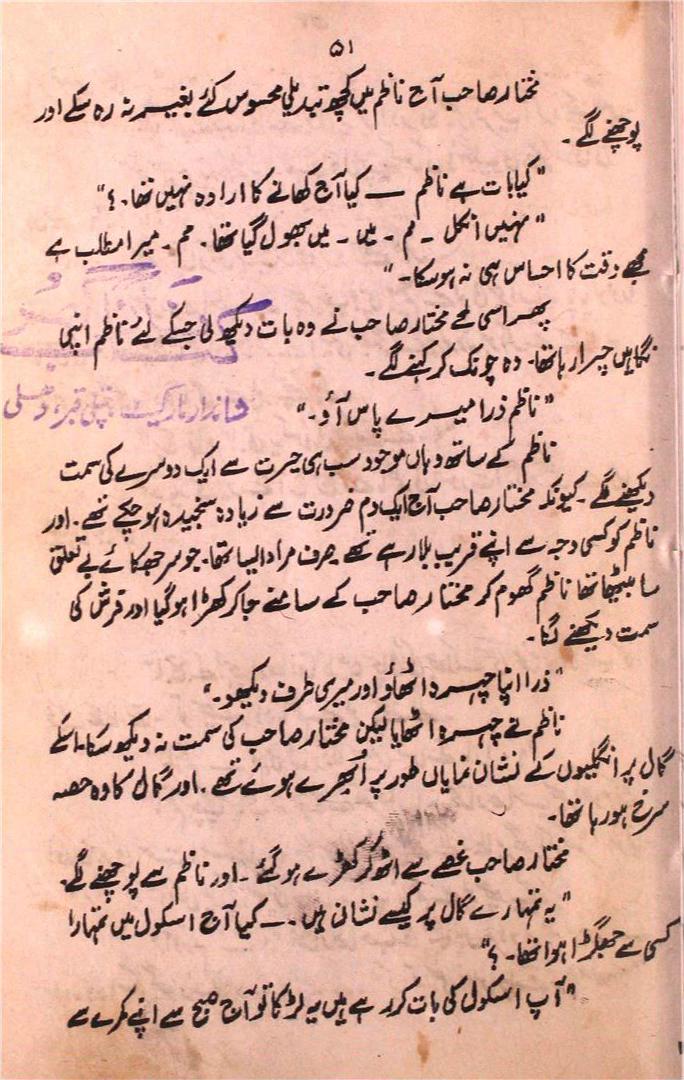 ۵۱
مختار صاحب آج ناظم میں کچھ تبدیلی محسوس کئے بغیر نہ رہ سکے اور
پوچھنے لگے۔
"کیا بات ہے ناظم — کیا آج کھانے کا ارادہ نہیں تھا۔؟"
"نہیں انکل ۔ م ۔ میں ۔ میں بھول گیا تھا۔ مم ۔ میرا مطلب ہے
مجھے وقت کا احساس ہی نہ ہو سکا۔"
پھر اسی لمحے مختار صاحب نے وہ بات دیکھ لی جسکے لئے ناظم اپنی
نگاہیں چرا رہا تھا۔ وہ چونک کر کہنے لگے۔
"ناظم ذرا میرے پاس آؤ۔"
شاندار مارکیٹ قبر دھلی
ناظم کے ساتھ وہاں موجود سب ہی حیرت سے ایک دوسرے کی سمت
دیکھنے لگے۔ کیونکہ مختار صاحب آج ایک دم ضرورت سے زیادہ سنجیدہ ہو چکے تھے۔ اور
ناظم کو کسی وجہ سے اپنے قریب بلا رہے تھے صرف مراد ایسا تھا۔ جو سر جھکائے بے تعلق
سا بیٹھا تھا ناظم گھوم کر مختار صاحب کے سامنے جا کر کھڑا ہو گیا اور فرش کی
سمت دیکھنے لگا۔
"ذرا اپنا چہرہ اٹھاؤ اور میری طرف دیکھو۔"
ناظم نے چہرہ اٹھایا لیکن مختار صاحب کی سمت نہ دیکھ سکا۔ اسکے
گال پر انگلیوں کے نشان نمایاں طور پر اُبھرے ہوئے تھے۔ اور گال کا وہ حصہ
سرخ ہو رہا تھا۔
مختار صاحب غصے سے اٹھ کر کھڑے ہو گئے۔ اور ناظم سے پوچھنے لگے۔
"یہ تمہارے گال پر کیسے نشان ہیں۔ — کیا آج اسکول میں تمہارا
کسی سے جھگڑا ہوا تھا۔؟"
"آپ اسکول کی بات کر رہے ہیں یہ لڑکا تو آج صبح سے اپنے کمرے سے